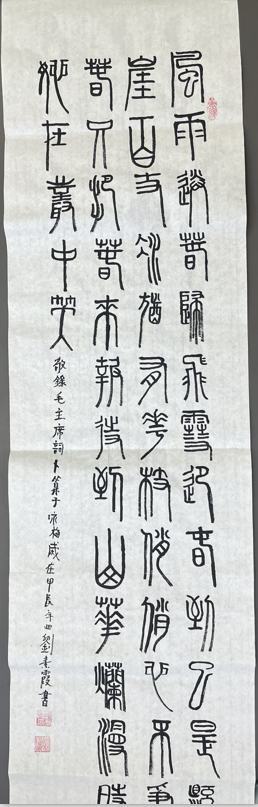 風雨送春歸飛雪迎春到已是懸
崖百丈冰猶有花枝俏俏也不爭
春只把春來報待到山華爛漫時
她在叢中笑
敬錄毛主席詞卜算子咏梅歲在甲辰年劉素霞書